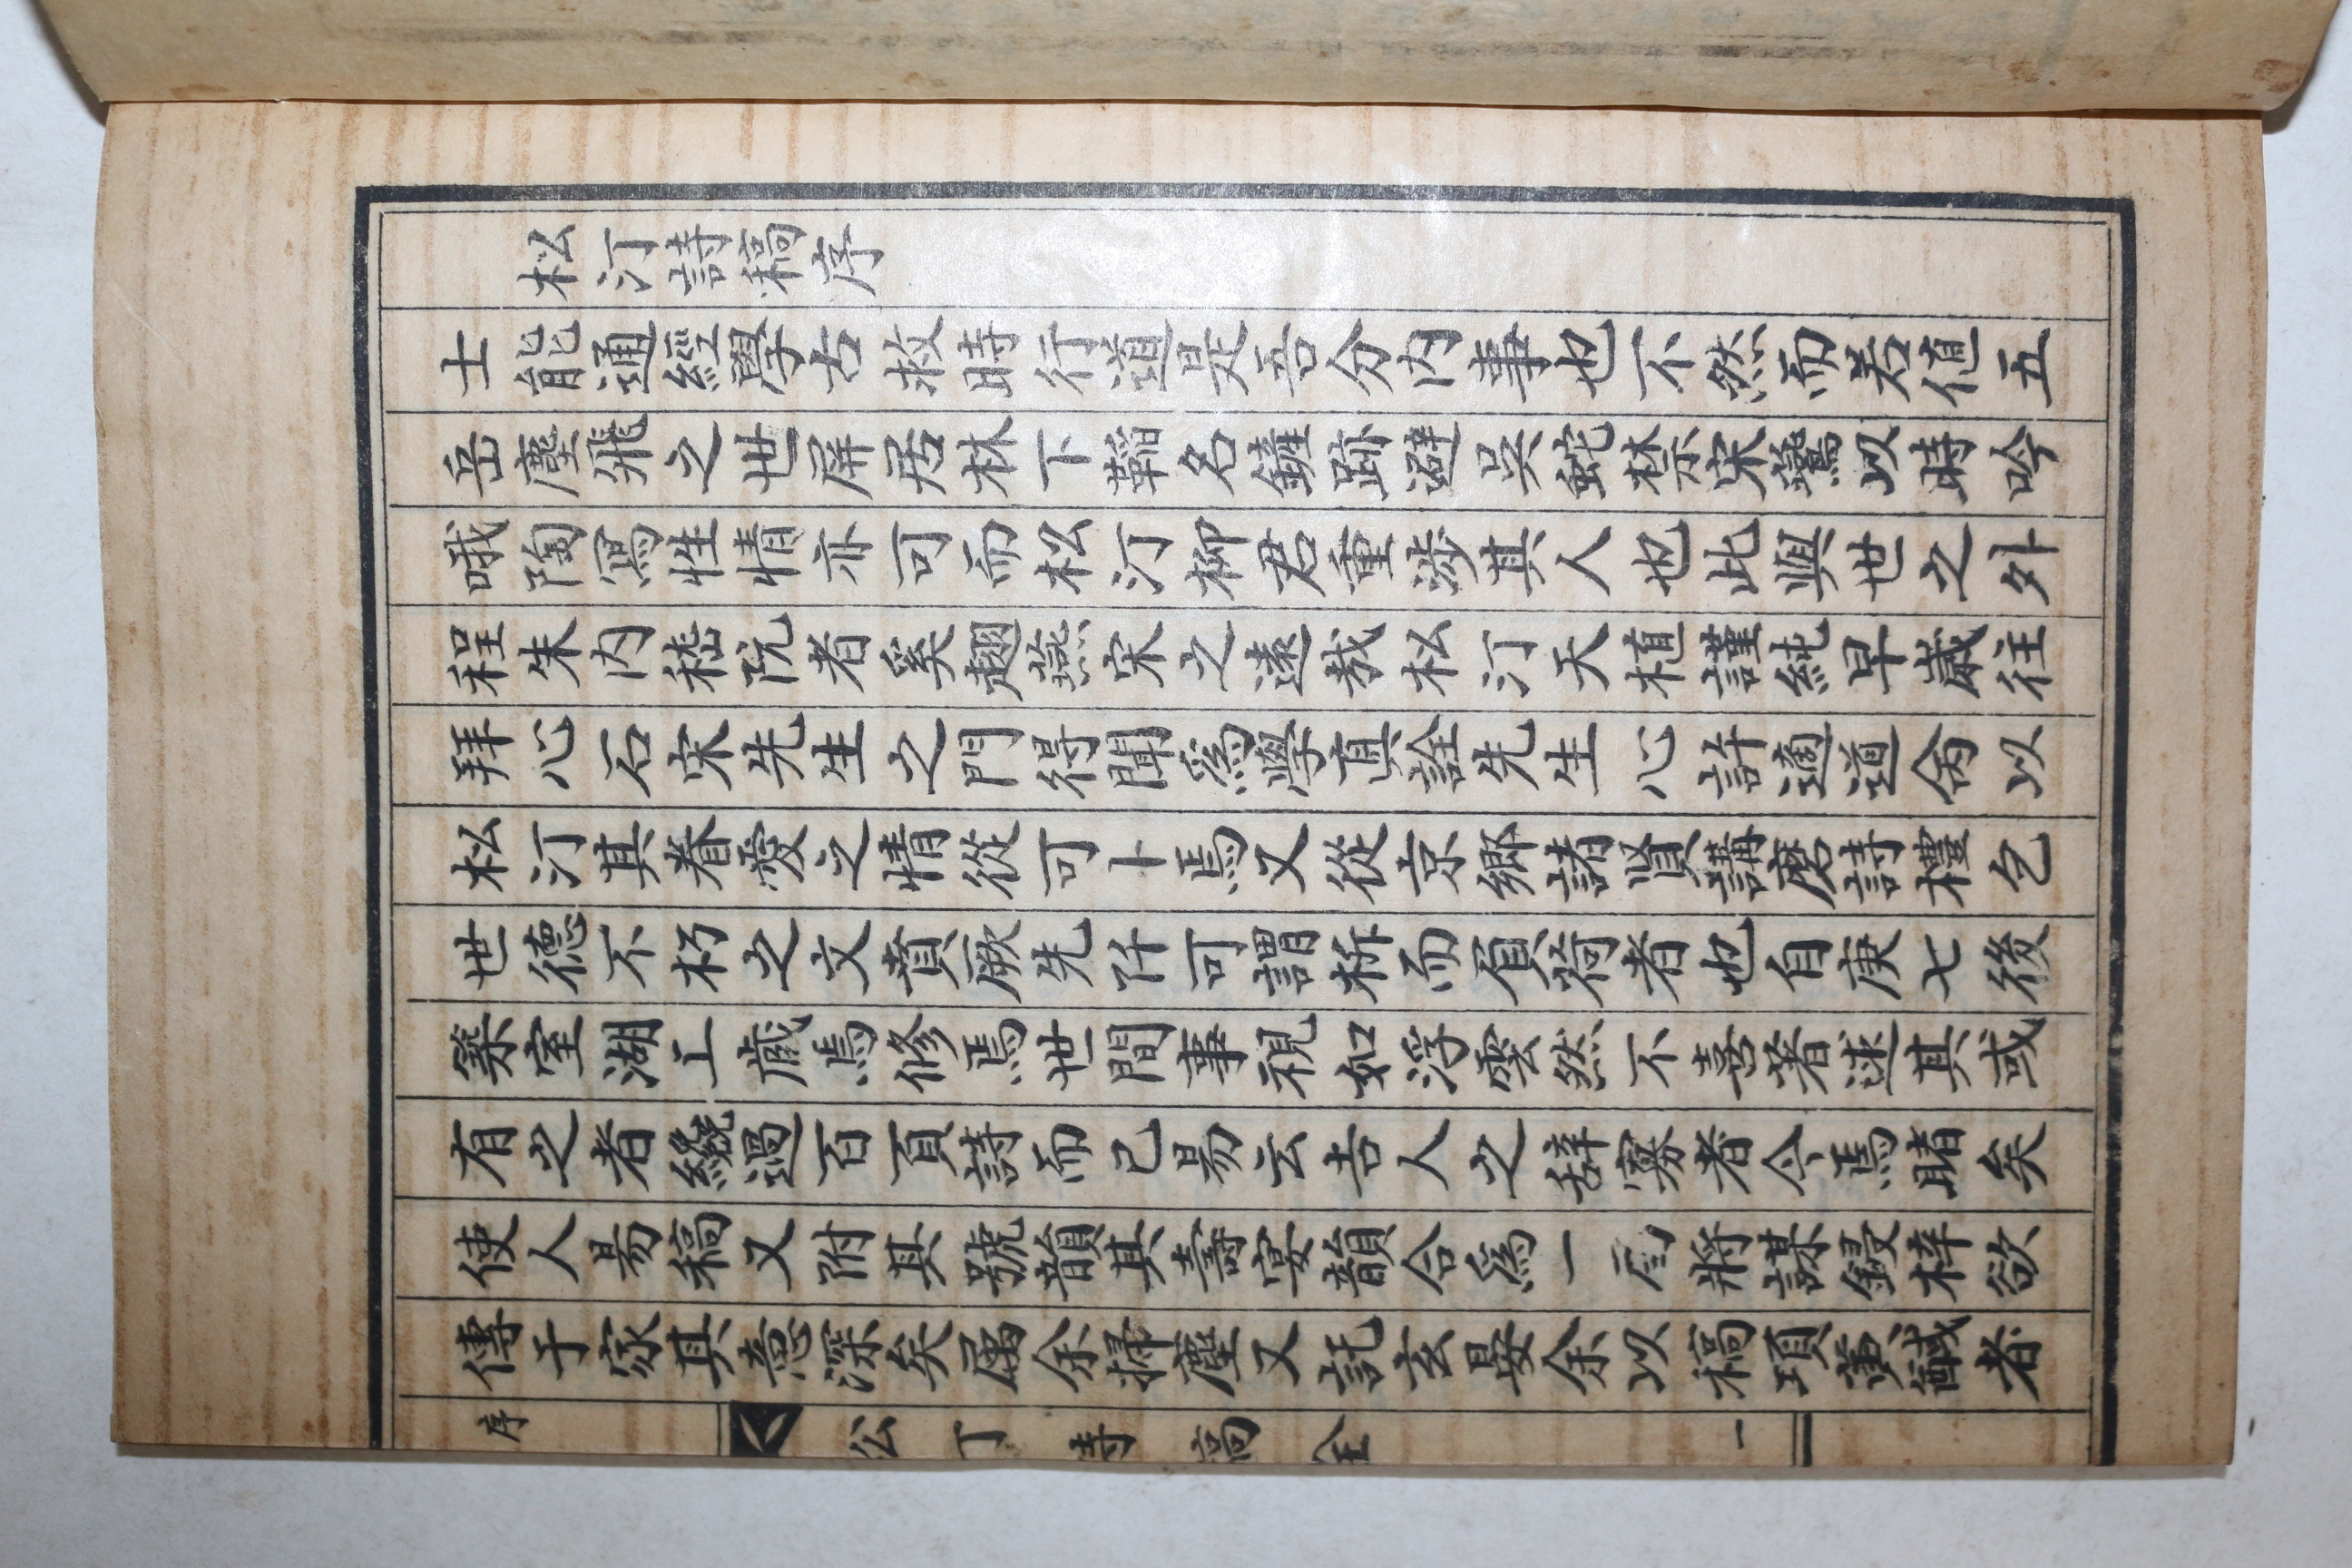 松汀詩稿序
士能通經學古救時行道是吾分內事也不然而若值五
岳塵飛之世屏居林下韜名鏟跡避吳蛇禁宋鷰以時吟
哦陶寫性情亦可而松汀柳君重涉其人也此與世之外
程朱內嵇阮者奚翅燕宋之遠哉松汀天植謹純早歲往
拜心石宋先生之門得聞爲學眞詮先生心許適道俞以
松汀其眷愛之情從可卜焉又從京鄉諸賢講磨詩禮乞
世德不朽之文賁厥先阡可謂析而負荷者也自庚七後
築室湖上藏焉修焉世間事視如浮雲然不喜著述其或
有之者纔過百頁詩而已易云吉人之辭寡者今焉睹矣
使人易稿又附其號韻其壽宴韻合爲一局將謀鋟梓欲
傳于家其意深矣屬余掃塵又託玄晏余以稿項黃馘者
序 松汀詩稿全 一